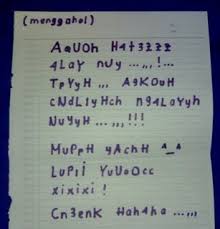 (menggahol)
AqUOh H4t3 zzz
4LaY nUy ...,,, !...
TpYyH ,,, AgKOuH
cNdL1yHch ng4LaYyh
NuYyH ...,,, !!!
MuPpH yAchH ^_^
LuPii YuUoOcc
xixixi !
Cn3enK Hah4ha ...,,